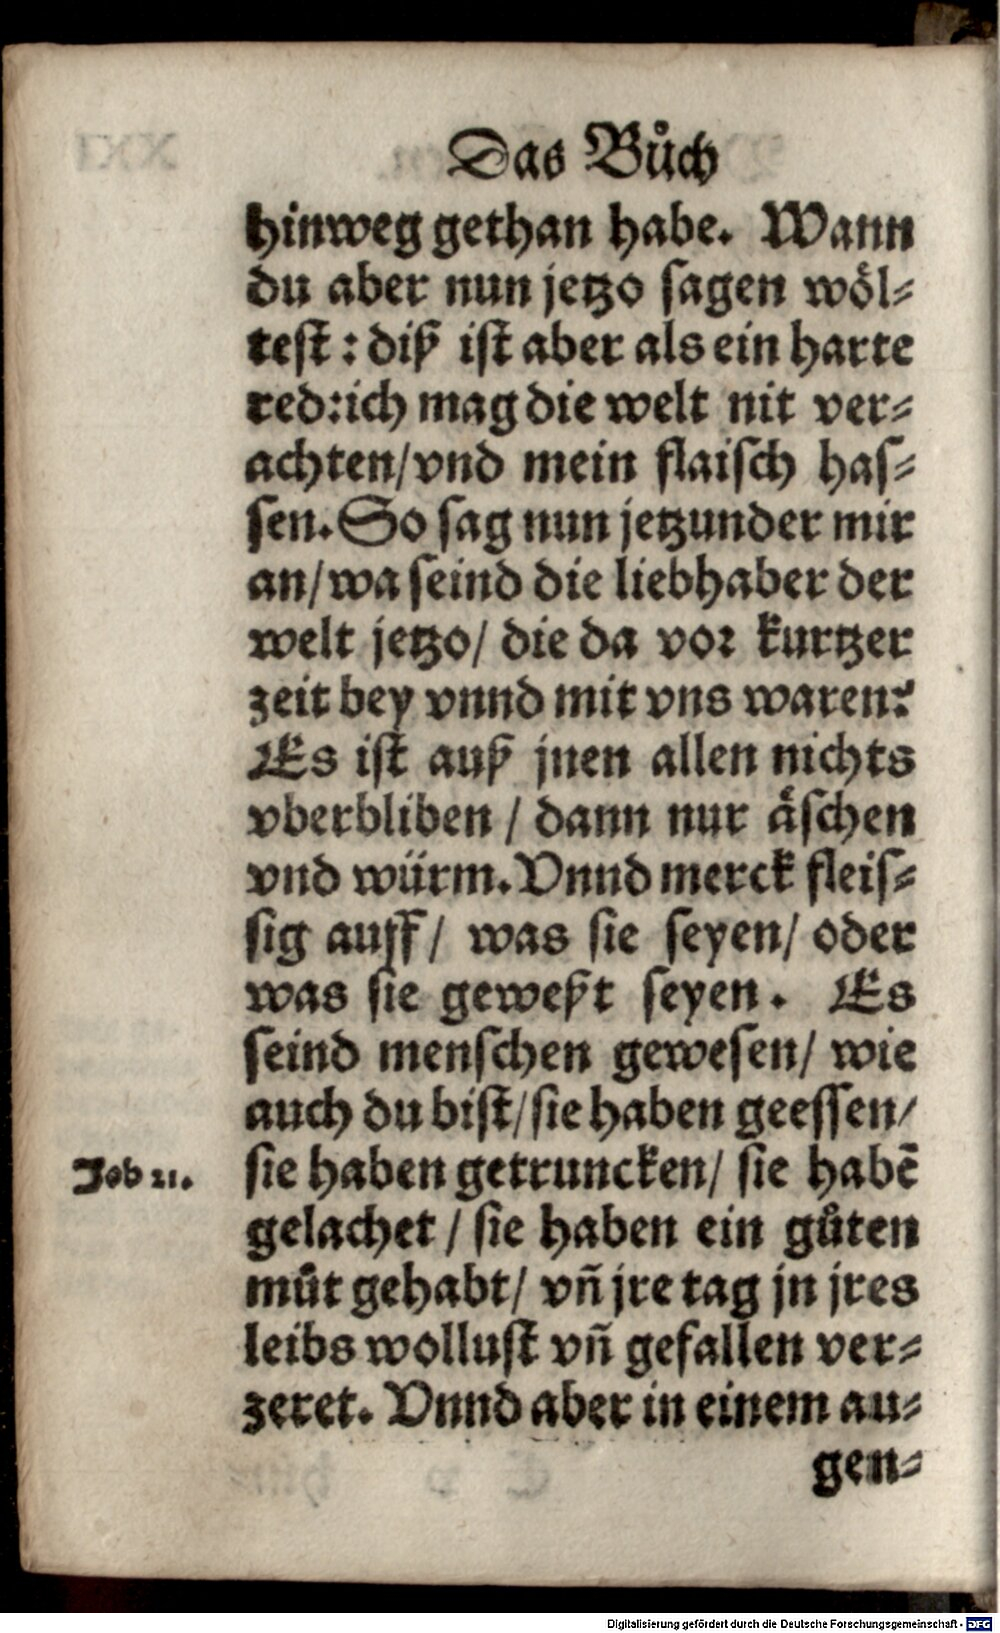 Das Bůch
hinweg gethan habe. Wann
du aber nun jetzo sagen wöl-
test: diß ist aber als ein harte
red: ich mag die welt nit ver-
achten/ vnd mein flaisch has-
sen. So sag nun jetzunder mir
an/ wa seind die liebhaber der
welt jetzo/ die da vor kurtzer
zeit bey vnnd mit vns waren?
Es ist auß jnen allen nichts
vberbliben / dann nur äschen
vnd würm. Vnnd merck fleis-
sig auff/ was sie seyen/ oder
was sie geweßt seyen. Es
seind menschen gewesen/ wie
auch du bist/ sie haben geessen/
Job 21.
sie haben getruncken/ sie habē
gelachet / sie haben ein gůten
můt gehabt/ vñ jre tag jn jres
leibs wollust vñ gefallen ver-
zeret. Vnnd aber in einem au-
gen-
Digitalisierung gefördert durch die Deutsche Forschungsgemeinschaft - DFG